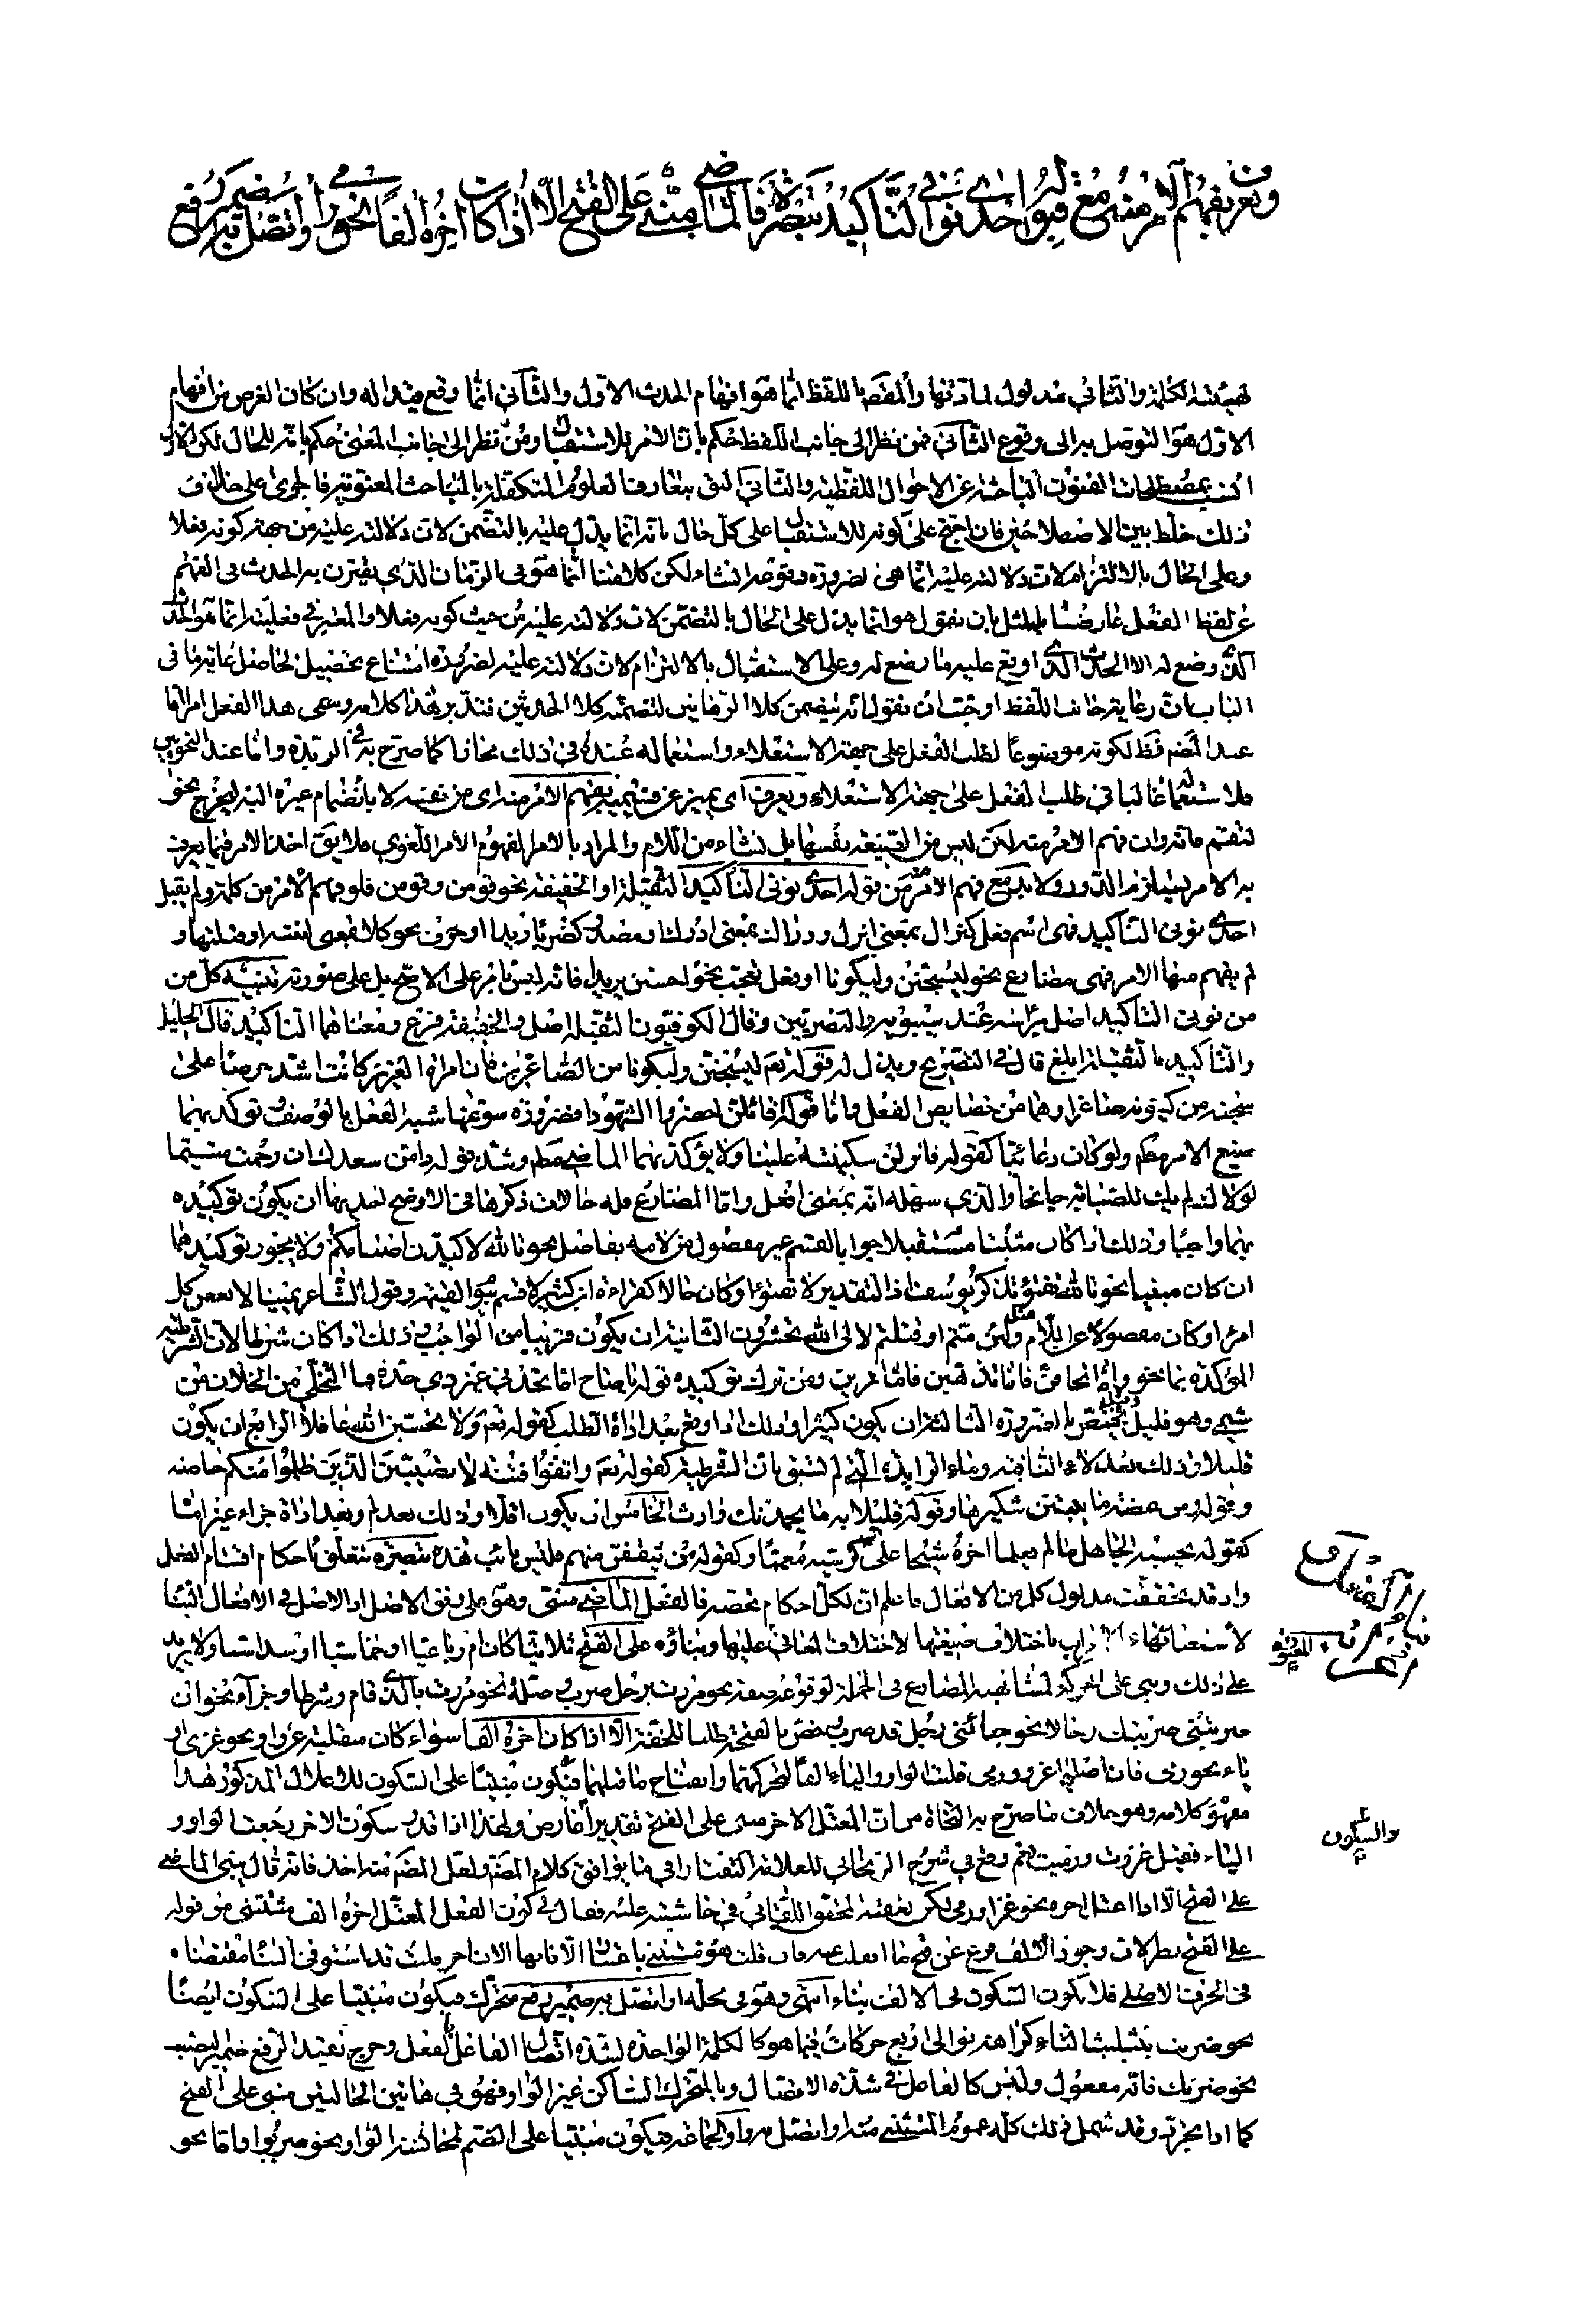 ويعرف بفهم الامر منه مع قبوله احدى نوني التأكيد تبصرة فالماضي مبني على الفتح الا اذا كان اخره الفا نحو رمى او اتصل به ضمير رفع
لهيئة الكلمة والثاني مدلول لمادتها والمقصد باللفظ انما هو افهام الحدث الاول والثاني انما وقع قيدا له وان كان الغرض من افهام
الاول هو التوصل به الى وقوع الثاني فمن نظر الى جانب اللفظ حكم بان الامر للاستقبال ومن نظر الى جانب المعنى حكم بانه للحال لكن الاول
انسب بمصطلحات الفنون الباحثة عن الاحوال اللفظية والثاني اليق بتعارف العلوم المتكفلة بالمباحث المعنوية فالجري على خلاف
ذلك خلط بين الاصطلاحين فان احتج على كونه للاستقبال على كل حال بانه انما يدل عليه بالتضمن لان دلالته عليه من جهة كونه فعلا
وعلى الحال بالالتزام لان دلالته عليه انما هي لضرورة وقوعه انشاء لكن كلامنا انما هو في الزمان الذي يقترن به الحدث في الفهم
عن لفظ الفعل عارضناه بالمثل بان نقول هو انما يدل على الحال بالتضمن لان دلالته عليه من حيث كونه فعلا والمعتبر في فعليته انما هو الحدث
الذي وضع له لا الحدث الذي اوقع عليه ما وضع له وعلى الاستقبال بالالتزام لان دلالته عليه لضرورة امتناع تحصيل الحاصل غاية ما في
الباب ان رعاية جانب اللفظ اوجبت ان نقول انه يتضمن كلا الزمانين لتضمنه كلا الحدثين فتدبر هذا كلامه وسمي هذا الفعل امرا اما
عند المصنف فظ لكونه موضوعا لطلب الفعل على جهة الاستعلاء واستعماله عنده في ذلك مجازا كما صرح به في الزبدة واما عند النحويين
فلاستعماله غالبا في طلب الفعل على جهة الاستعلاء ويعرف اى يميز عن قسيميه بفهم الامر منه اى من نفسه لا بانضمام غيره اليه ليخرج نحو
لتقم فانه وان فهم الامر منه لكن ليس من الصيغة نفسها بل نشاء من اللام والمراد بالامر المفهوم الامر اللغوي فلا يق اخذ الامر فيما يعرف
به الامر فيلزم الدور ولا بد مع فهم الامر من قبوله احدى نوني التأكيد الثقيلة او الخفيفة نحو قومن وقومن فلو فهم الامر من كلمة ولم يقبل
احدى نوني التأكيد فهي اسم فعل كنزال بمعنى انزل ودراك بمعنى ادرك او مصدر كضربا زيدا او حرف نحو كلا بمعنى انته او ضلتها و
لم يفهم منها الامر فهي مضارع نحو ليسجنن وليكونا او فعل تعجب نحو احسن بزيد فانه ليس بامر على الاصح بل على صورته تنبيه كل من
من نوني التأكيد اصل برأسه عند سيبويه والبصريين وقال الكوفيون الثقيلة اصل والخفيفة فرع ومعناهما التأكيد قال الخليل
والتأكيد بالثقيلة ابلغ قال في التصريح ويدل له قوله تعم ليسجنن وليكونا من الصاغرين فان امرأة العزيز كانت اشد حرصا على
سجنه من كينونته صاغرا وهما من خصايص الفعل واما قوله اقائلن احضروا الشهودا فضرورة سوغها شبه الفعل بالوصف توكد بهما
صيغ الامر مطلقا ولو كان دعائيا كقوله فانزلن سكينة علينا ولا يؤكد بهما الماضي مطلقا وشذ قوله دامن سعدك ان رحمت متيما
لولاك لم يك للصبابة جانحا والذي سهله انه بمعنى افعل واما المضارع فله حالات ذكرها في الاوضح احديها ان يكون توكيده
بهما واجبا وذلك اذا كان مثبتا مستقبلا جوابا لقسم غير مفصول من لامه بفاصل نحو تالله لاكيدن اصنامكم ولا يجوز توكيده بهما
ان كان منفيا نحو تالله تفتؤ تذكر يوسف اذ التقدير لا تفتؤ او كان حالا كقراءة ابن كثير لاقسم بيوم القيمة وقول الشاعر يمينا لابغض كل
امرئ او كان مفصولا عن اللام مثل ولئن متم او قتلتم لالى الله تحشرون الثانية ان يكون قريبا من الواجب وذلك اذا كان شرطا لان الشرطية
المؤكدة بما نحو واما تخافن فاما نذهبن فاما ترين ومن ترك توكيده قوله يا صاح اما تجدني غير ذي جدة فما التخلي عن الخلان من
شيمي وهو قليل وقيل يختص بالضرورة الثالثة ان يكون كثيرا وذلك اذا وقع بعد اداة الطلب كقوله تعم ولا تحسبن الله غافلا الرابع ان يكون
قليلا وذلك بعد لا النافية وما الزايدة التي لم تسبق بان الشرطية كقوله تعم واتقوا فتنة لا تصيبن الذين ظلموا منكم خاصة
وقوله ومن عضة ما ينبتن شكيرها وقوله قليلا به ما يحمدنك وارث الخامس ان يكون اقل وذلك بعد لم وبعد اداة جزاء غير اما
كقوله يحسبه الجاهل ما لم يعلما اخره شيخا على كرسيه معمما وكقوله من تثقفن منهم فليس بائب هذه تبصرة تتعلق باحكام اقسام الفعل
واذ قد تحققت مدلول كل من الافعال فاعلم ان لكل احكام تخصه فالفعل الماضي مبني وهو على وفق الاصل اذ الاصل في الافعال البناء
لاستغنائها عن الاعراب باختلاف صيغها لاختلاف المعاني عليها وبناؤه على الفتح ثلاثيا كان ام رباعيا او خماسيا او سداسيا ولا يزيد
على ذلك وبني على الحركة لمشابهته المضارع في الجملة لوقوعه صفة نحو مررت برجل ضرب وصلة نحو مررت بالذي قام وشرطا وجزاء نحو ان
ضربتني ضربتك وحالا نحو جائني رجل قد ضرب وخص بالفتحة طلبا للخفة الا اذا كان اخره الفا سواء كان منقلبة عن واو نحو غزى او
ياء نحو رمى فان اصلهما غزو ورمي قلبت الواو والياء الفا لتحركهما وانفتاح ما قبلهما فيكون مبنيا على السكون للاعلال المذكور هذا
مفهوم كلامه وهو خلاف ما صرح به النحاة من ان المعتل الاخر مبني على الفتح تقديرا لعارض ولهذا اذا قدر سكون الاخر رجعت الواو و
الياء فقيل غزوت ورميت نعم وقع في شرح الزنجاني للعلامة التفتازاني ما يوافق كلام المصنف ولعل المصنف منه اخذ فانه قال يبنى الماضي
على الفتح الا اذا اعتل اخره نحو غزا ورمى لكن تعقبه المحقق اللقاني في حاشيته عليه فقال في كون الفعل المعتل اخره الف مستثنى من قوله
على الفتح نظر لان وجود الالف فرع عن فتح ما انقلبت عنه فان قلت هو مستثنى باعتبار الالف نفسها الان اخره قلت قد استوفى البناء مقتضاه
في الحرف الاصلي فلا يكون السكون في الالف بناء انتهى وهو في محله او اتصل به ضمير رفع متحرك فيكون مبنيا على السكون ايضا
نحو ضربت بتثليث التاء كراهة توالي اربع حركات فيما هو كالكلمة الواحدة لشدة اتصال الفاعل بالفعل وخرج بقيد الرفع ضمير النصب
نحو ضربك فانه مفعول وليس كالفاعل في شدة الاتصال وبالمتحرك الساكن غير الواو فهو في هاتين الحالتين مبني على الفتح
كما اذا تجرد وقد شمل ذلك كله عموم المستثنى منه او اتصل به واو الجماعة فيكون مبنيا على الضم لمجانسة الواو نحو ضربوا واما نحو
والسكون